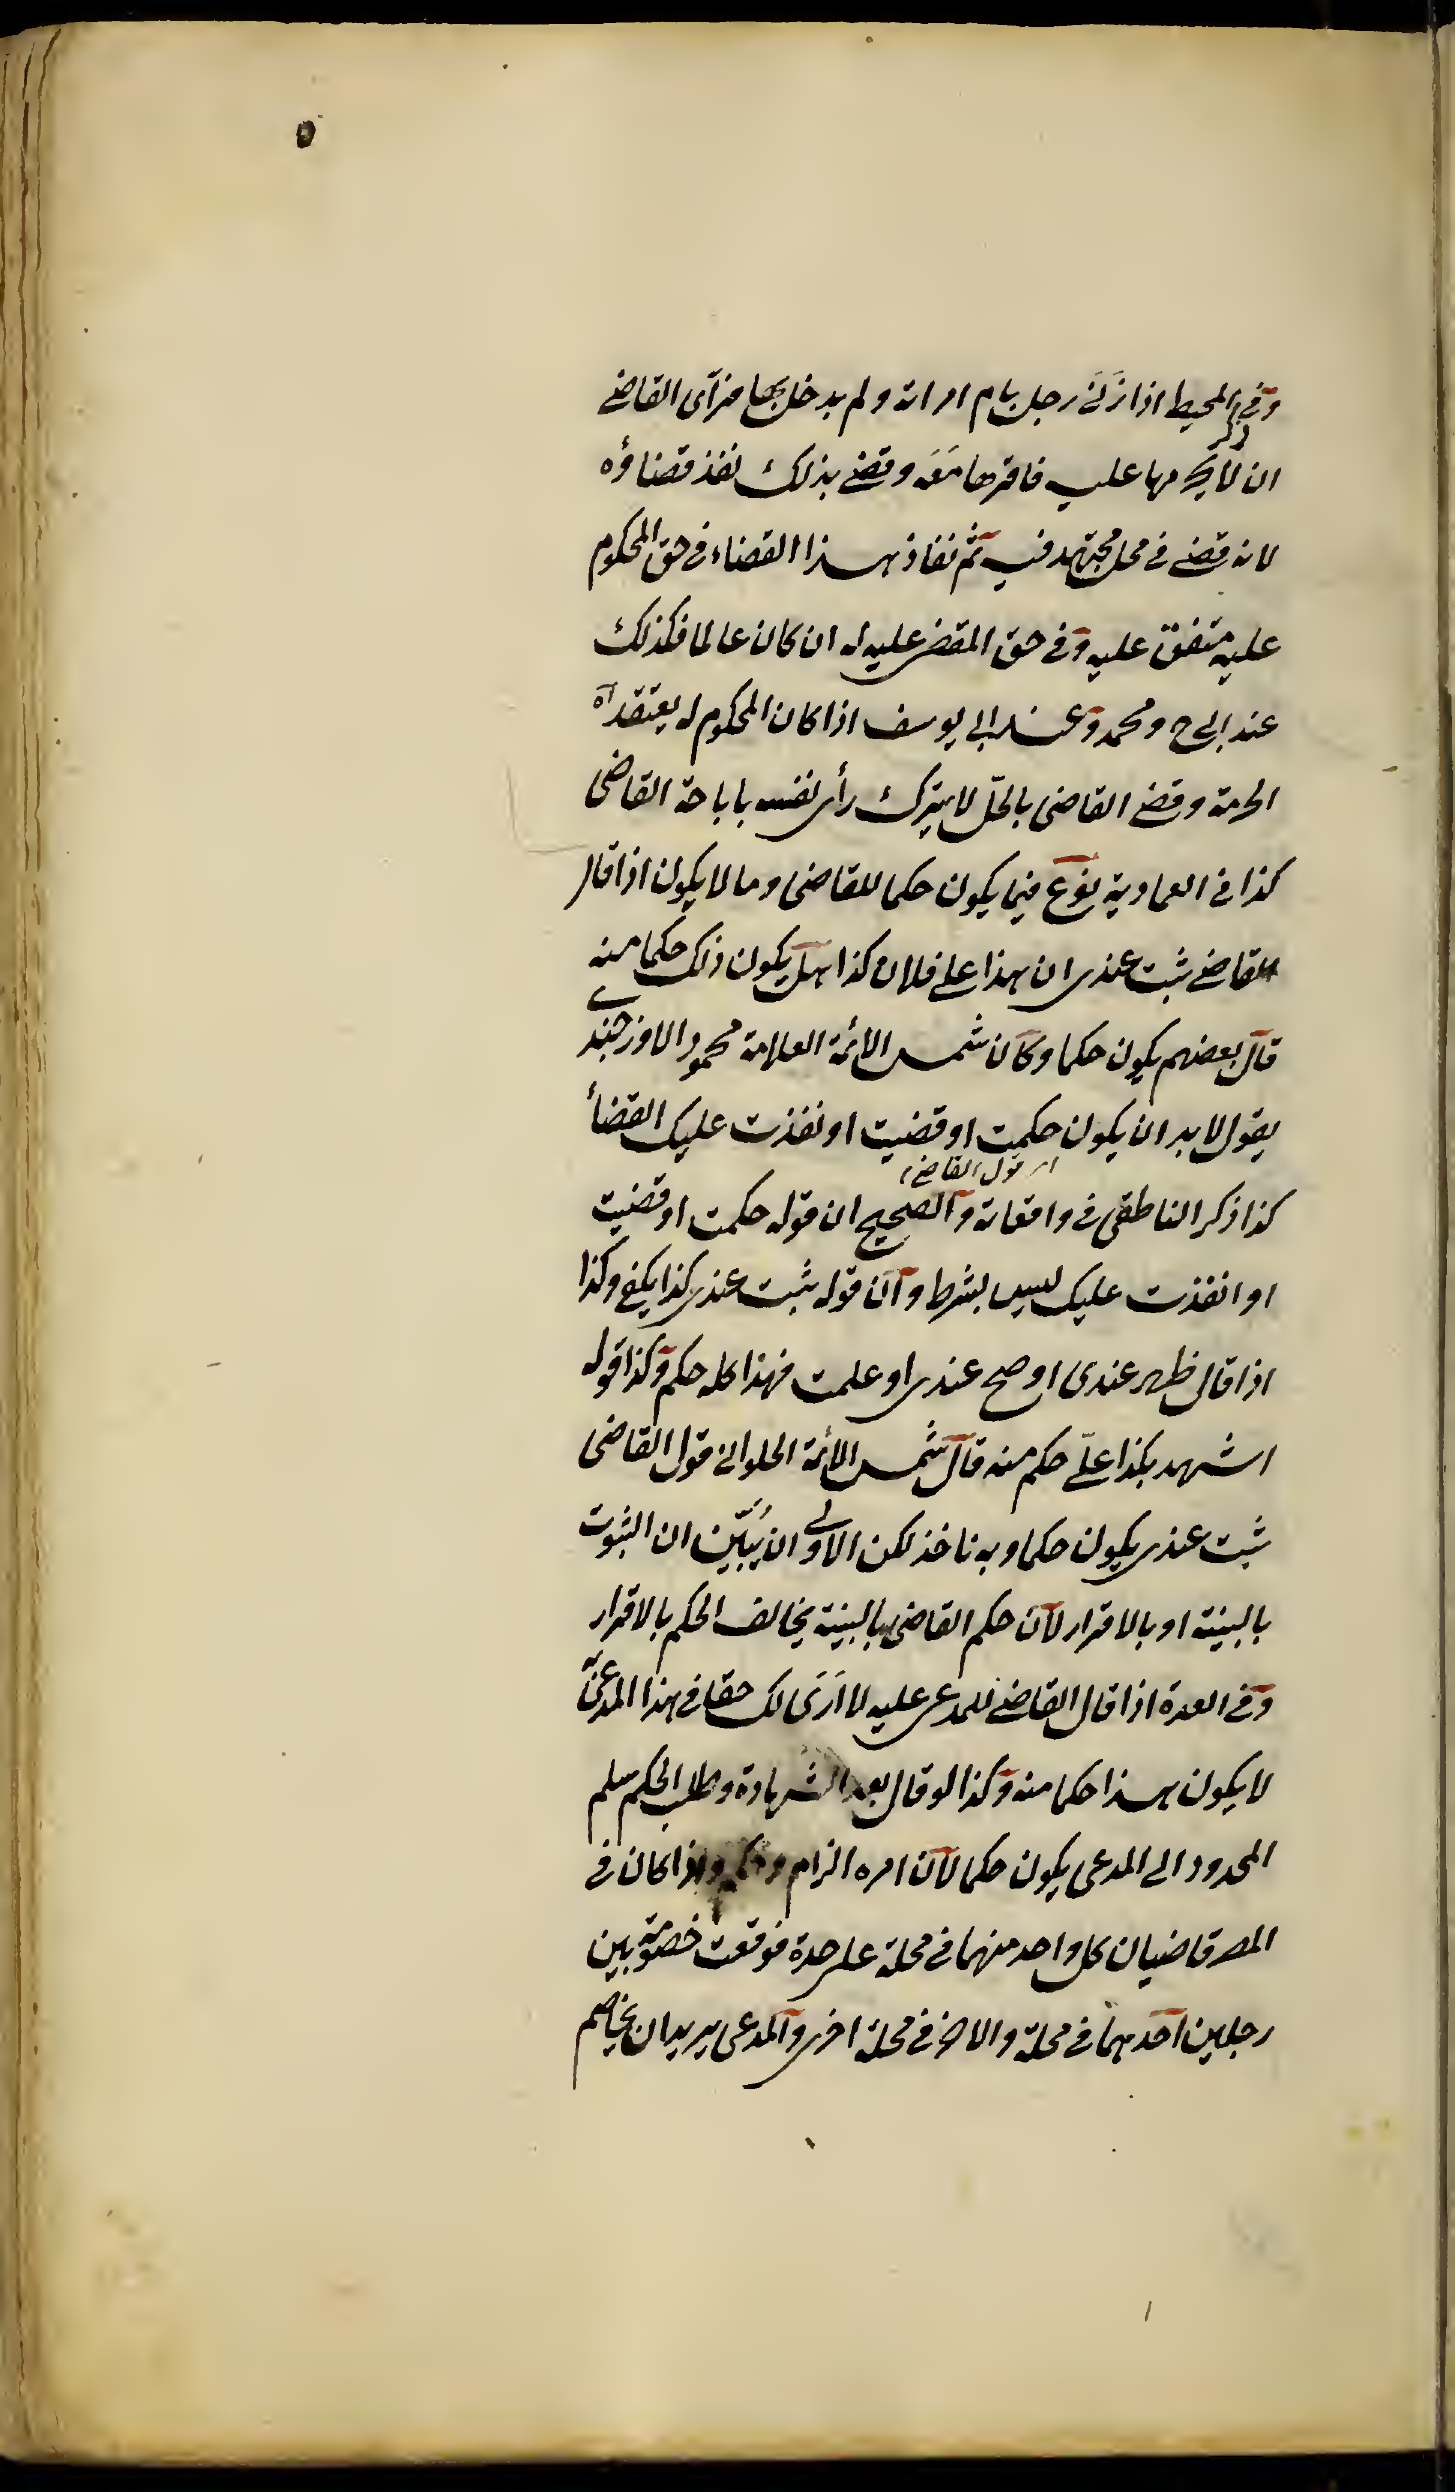 ٥
وفي المحيط اذا زنى رجل بام امراته ولم يدخل بها فرآى القاضي
ان لا يحرمها عليه فاقرها معه وقضى بذلك نفذ قضاؤه
لانه قضى في محل مجتهد فيه ثم نفاذ هذا القضاء في حق المحكوم
عليه متفق عليه وفي حق المقضى عليه له ان كان عالما فكذلك
عند ابي ح ومحمد وعند ابي يوسف اذا كان المحكوم له يعتقد
الحرمة وقضى القاضى بالحلّ لا يترك رأى نفسه باباحة القاضى
كذا في العمادية نوع فيما يكون حكما للقاضى وما لا يكون اذا قال
القاضي ثبت عندى ان لهذا على فلان كذا هل يكون ذلك حكما منه
قال بعضهم يكون حكما وكان شمس الائمة العلامة محمود الاوزجندى
يقول لابد ان يكون حكمت او قضيت او نفذت عليك القضأ
اى قول القاضى
كذا ذكر الناطقى في واقعاته والصحيح ان قوله حكمت او قضيت
او انفذت عليك ليس بشرط وان قوله ثبت عندى كذا يكفى وكذا
اذا قال ظهر عندى او صح عندى او علمت فهذا كله حكم وكذا قوله
اشهد بكذا علىّ حكم منه قال شمس الائمة الحلوانى قول القاضى
ثبت عندى يكون حكما وبه ناخذ لكن الاولى ان يُبيّن ان الثبوت
بالبينة او بالاقرار لان حكم القاضى بالبينة يخالف الحكم بالاقرار
وفي العدة اذا قال القاضى للمدعى عليه لا ارى لك حقا في هذا المدعى
لا يكون هذا حكما منه وكذا لو قال بعد الشهادة وطلب الحكم سلم
المحدود الى المدعى يكون حكما لان امره الزام وحكم واذا كان في
المصر قاضيان كل واحد منهما في محلة على حدة فوقعت خصومة بين
رجلين احدهما في محلة والاخر في محلة اخرى والمدعى يريد ان يخاصم